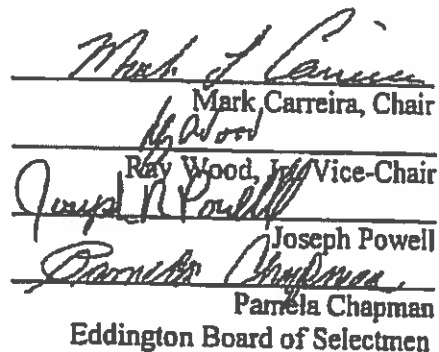 Mark J Carreira
Mark Carreira, Chair
Ray Wood
Ray Wood, Jr., Vice-Chair
Joseph N Powell
Joseph Powell
Pamela Chapman
Pamela Chapman
Eddington Board of Selectmen